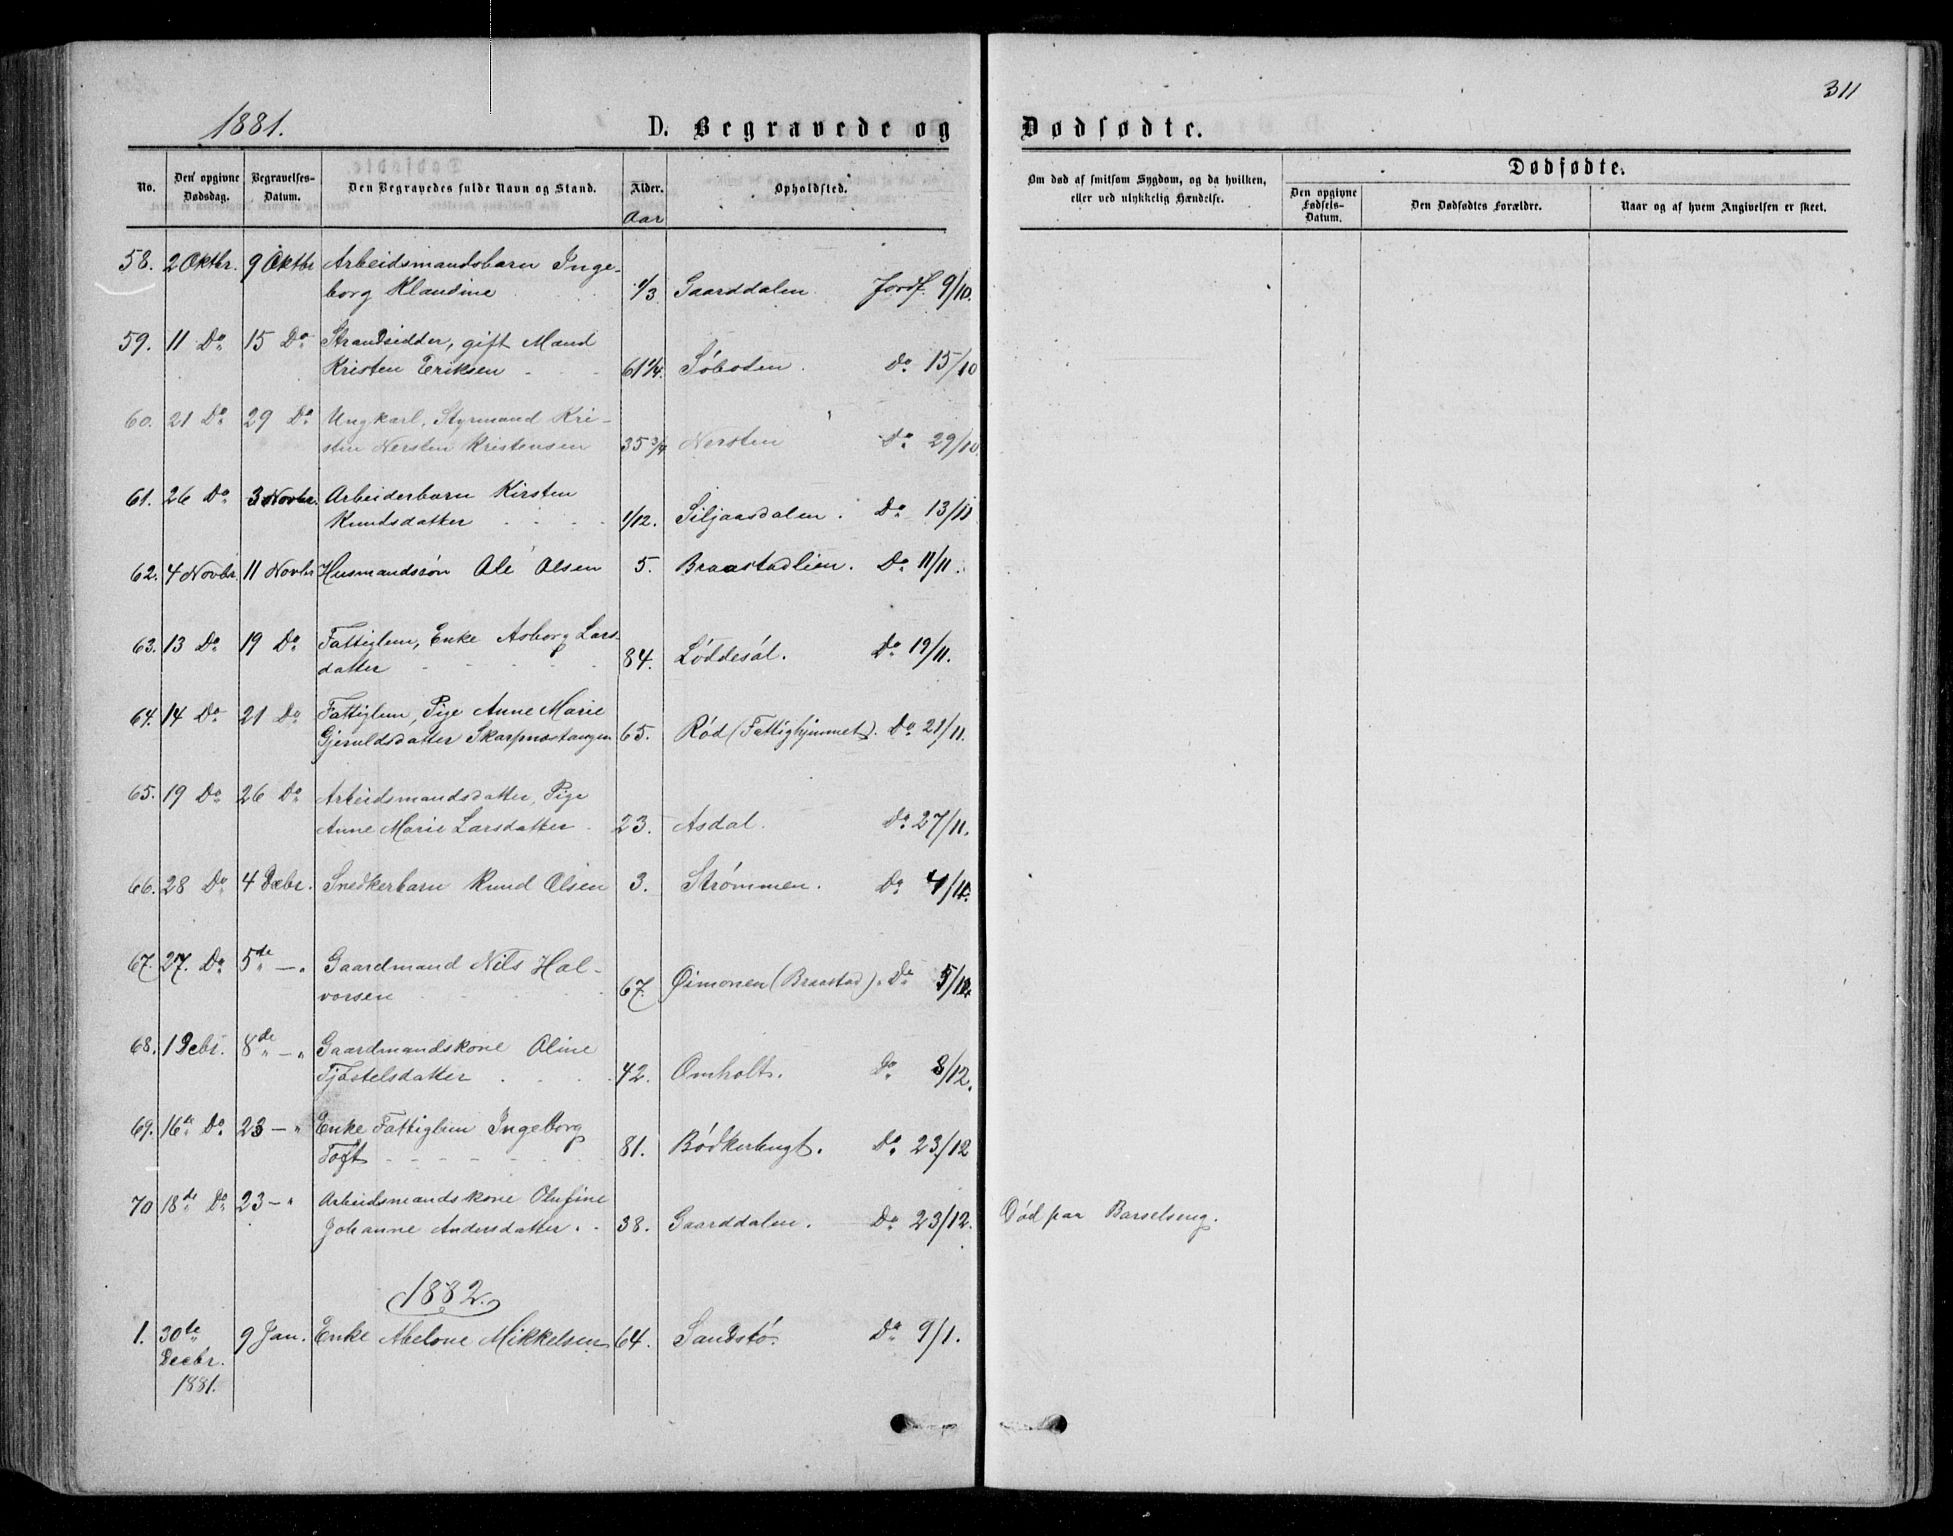 311
1881.
D. Begravede og
Dødfødte.
No.
Den opgivne Dødsdag.
Begravelses-Datum.
Den Begravedes fulde Navn og Stand.
Alder.
Opholdssted.
Aar
Om død af smitsom Sygdom, og da hvilken,
eller ved ulykkelig Hændelse.
Dødfødte.
Den opgivne Fødsels-Datum.
Den Dødfødtes Forældre.
Naar og af hvem Angivelsen er skeet.
58. 2 Oktbr. 9 Oktbr Arbeidsmandsbarn Inge-
borg Klaudine 1/3 Gaarddalen. Jordf. 9/10.
59. 11 Do 15 Do Strandsidder, gift Mand
Kristen Eriksen 61 1/4. Søboten. Do 15/10
60. 21 Do 29 Do Ungkarl, Styrmand Kri-
sten Nersten Kristensen 35 3/4 Nersten Do 29/10.
61. 26 Do 3 Novbr. Arbeiderbarn Kirsten
Knudsdatter 1/12. Siljaasdalen. Do 13/11
62. 4 Novbr. 11 Novbr Husmandssøn Ole Olsen 5. Braastadlien. Do 11/11.
63. 13 Do 19 Do Fattiglem, Enke Asborg Lars-
datter 84. Løddesøl. Do 19/11.
64. 14 Do 21 Do Fattiglem, Pige Anne Marie
Gjeruldsdatter Skarpnostangen 65. Rød (Fattighjemmet). Do 21/11.
65. 19 Do 26 Do Arbeidsmandsdatter, Pige
Anne Marie Larsdatter 23. Asdal. Do 27/11.
66. 28 Do 4 Decbr. Snedkerbarn Knud Olsen 3. Strømmen. Do 4/12.
67. 27. Do 5de — „ Gaardmand Nils Hal-
vorsen 67. Øimonen (Braastad). Do 5/12.
68. 1 Debr. 8de — „ Gaardmandskone Oline
Tjøstelsdatter 42. Omholt. Do 8/12.
69. 16de Do 23 — „ Enke Fattiglem Ingeborg
Toft 81. Bødkerbugt. Do 23/12
70 18de Do 23 — „ Arbeidsmandskone Olufine
Johanne Andersdatter. 38. Gaarddalen. Do 23/12. Død paa Barselseng.
1882.
1. 30te 9 Jan. Enke Abelone Mikkelsen 64. Sandstø. Do 9/1.
Decbr.
1881.